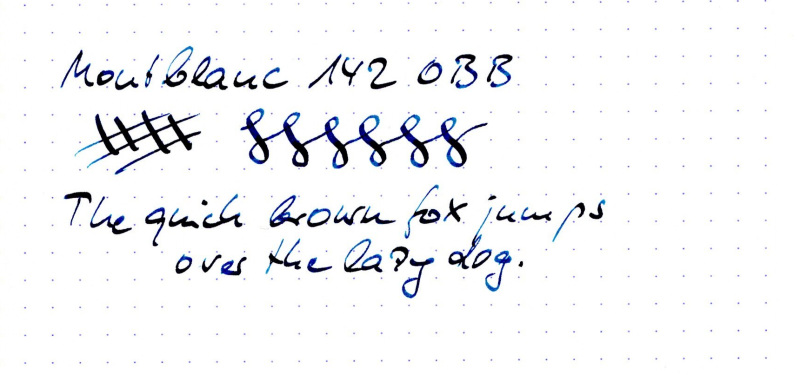 Montblanc 142 OBB
The quick brown fox jumps
over the lazy dog.